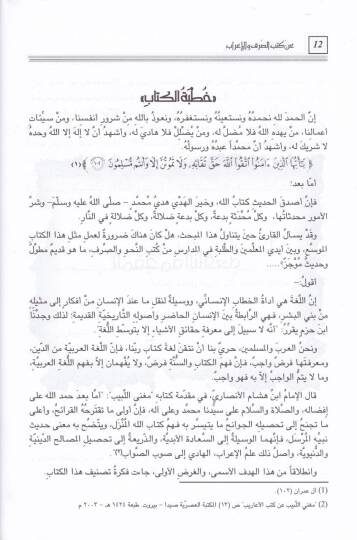 12
عن كتب الصرف والإعراب
«خطبة الكتاب»
إنّ الحمدَ لله نحمدهُ ونستعينهُ ونستغفرهُ، ونعوذُ بالله منْ شرورِ أنفسنا، ومنْ سيئات
أعمالنا، منْ يهده اللهُ فلا مُضلّ له، ومنْ يُضللْ فلا هاديَ له، وأشهدُ أنْ لا إلهَ إلا اللهُ وحدهُ
لا شريكَ له، وأشهدُ أنّ محمداً عبدهُ ورسولُه.
﴿ يَٰٓأَيُّهَا ٱلَّذِينَ ءَامَنُوا۟ ٱتَّقُوا۟ ٱللَّهَ حَقَّ تُقَاتِهِۦ وَلَا تَمُوتُنَّ إِلَّا وَأَنتُم مُّسْلِمُونَ ﴿١٠٢﴾ ﴾(١)
أمّا بعد:
فإنّ أصدقَ الحديث كتابُ الله، وخيرَ الهدي هديُ محمّد – صلى الله عليه وسلم– وشرَّ
الأمور محدثاتُها، وكلُّ مُحْدَثة بدعةٌ، وكلُّ بدعةٍ ضلالة، وكلُّ ضلالة في النّار.
وقد يسألُ القارئُ حينَ يتناولُ هذا المبحث، هلْ كانَ هناكَ ضرورةٌ لعملِ مثلِ هذا الكتاب
الموسّع، وبينَ أيدي المعلّمين والطّلبة في المدارس منْ كُتب النّحوِ والصّرف، ما هو قديمٌ مطوّلٌ
وحديثٌ مُوْجَز؟.....
أقولُ:-
إنّ اللّغةَ هيَ أداةُ الخطاب الإنسانّي، ووسيلةٌ لنقلِ ما عندَ الإنسان منْ أفكار إلى مثيله
منْ بني البشر، فهيَ الرّابطةُ بينَ الإنسان الحاضر وأصوله التّاريخيّة القديمة؛ لذلكَ وجدْنا
ابنَ حزم يقررُ: "أنّه لا سبيلَ إلى معرفة حقائق الأشياء إلا بتوسّط اللّغة".
ونحنُ العربَ والمسلمين، حريٌّ بنا أنْ نتقنَ لغةَ كتاب ربّنا، فإنّ اللّغةَ العربيّةَ من الدّين،
ومعرفتَها فرضٌ واجبٌ، فإنّ فهمَ الكتاب والسنّة فرضٌ، ولا يُفْهمان إلّا بفهم اللّغة العربيّة،
وما لا يتمُّ الواجبُ إلاّ به فهو واجبٌ.
قالَ الإمامُ ابنُ هشام الأنصاريّ، في مقدّمة كتابه "مغني اللّبيب": "أمّا بعدَ حمد الله على
إفضاله، والصّلاة والسّلام على سيّدنا محمّد وعلى آله، فإنّ أولى ما تقترحُهُ القرائحُ، وأعلى
ما تجنحُ إلى تحصيله الجوانحُ ما يتيسّر به فهمُ كتاب الله المُنْزَل، ويتّضحُ به معنى حديث
نبيّه المُرْسَل، فإنّهما الوسيلةُ إلى السّعادة الأبديّة، والذّريعةُ إلى تحصيلِ المصالح الدّينيّة
والدّنيويّة، وأصلُ ذلكَ علمُ الإعراب، الهادي إلى صوب الصّواب"(٢).
وانطلاقاً من هذا الهدف الأسمى، والغرضِ الأولى، جاءت فكرةُ تصنيف هذا الكتاب.
(1) آل عمران (١٠٢).
(2) "مغني اللبيب عن كتب الأعاريب" ص (١٣) المكتبة العصريّة صيدا – بيروت. طبعة ١٤٢٤ هـ - ٢٠٠٣ م